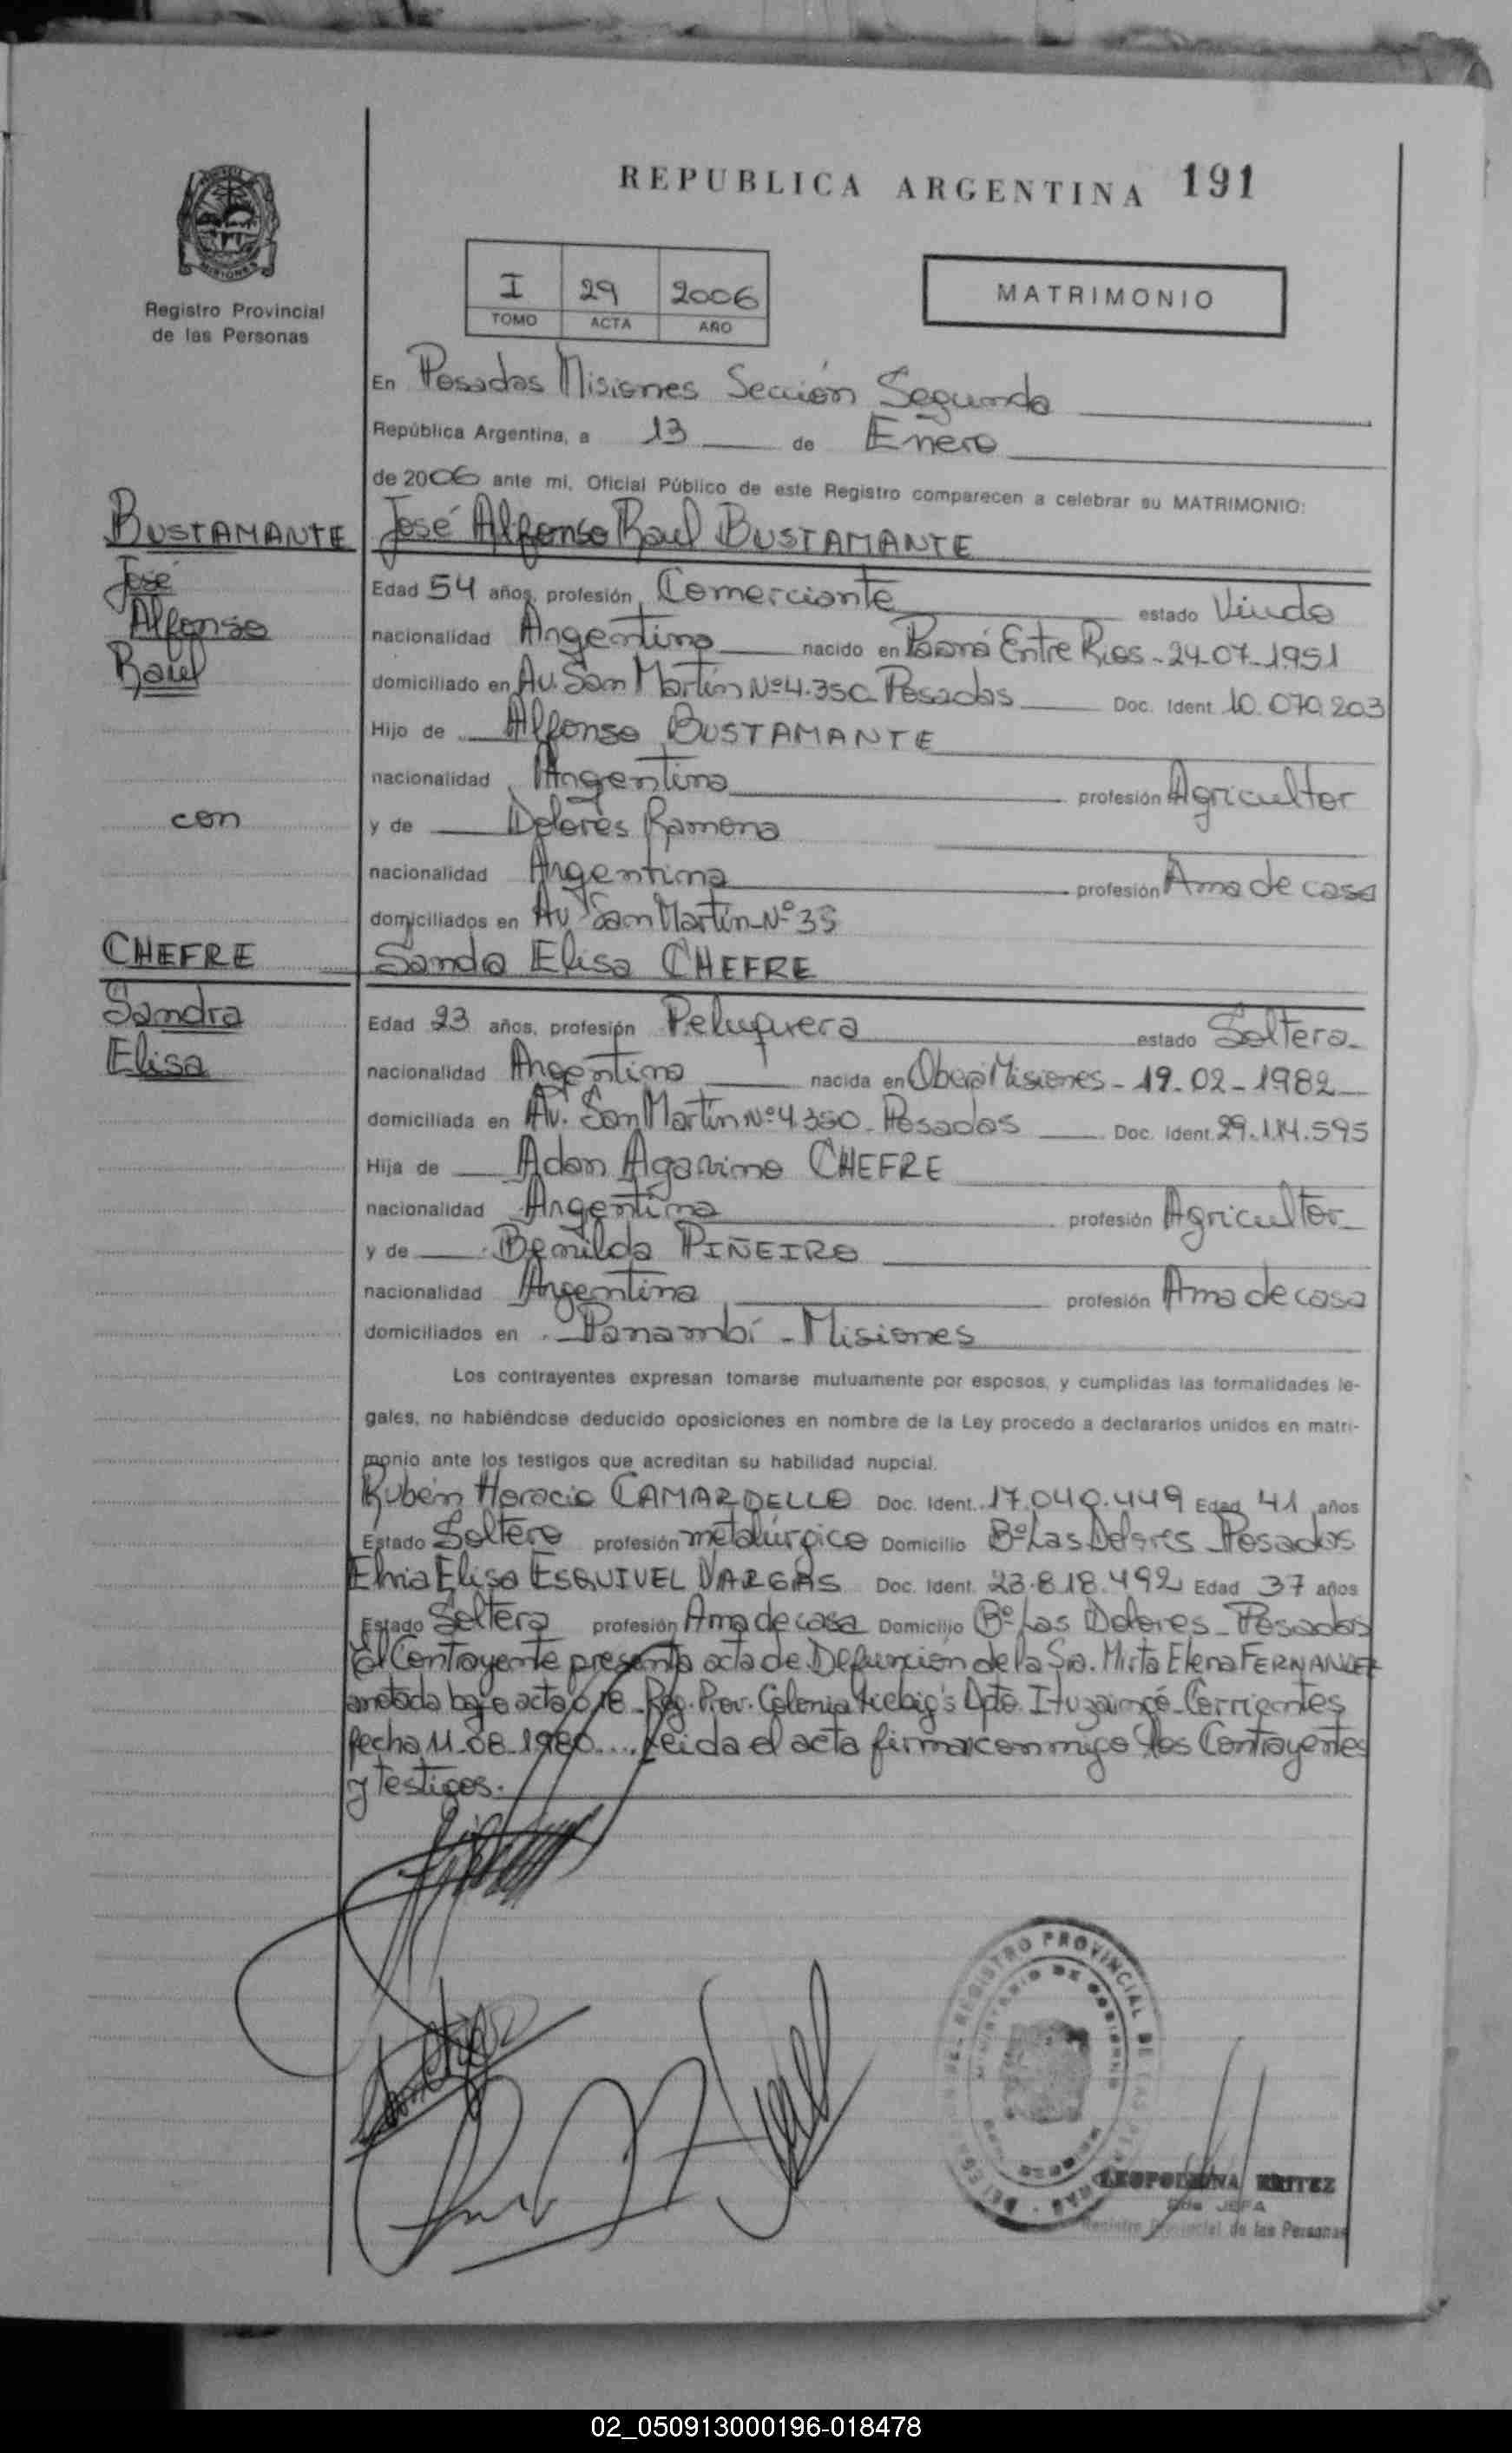 REPUBLICA ARGENTINA 191
MISIONES
Registro Provincial
de las Personas
I 29 2006
TOMO ACTA AÑO
MATRIMONIO
En Posadas Misiones Sección Segunda
República Argentina, a 13 de Enero
de 2006 ante mi, Oficial Público de este Registro comparecen a celebrar su MATRIMONIO:
BUSTAMANTE José Alfonso Raul BUSTAMANTE
José
Alfonso
Raúl
Edad 54 años, profesión Comerciante estado Viudo
nacionalidad Argentina nacido en Paraná Entre Rios - 24-07-1951
domiciliado en Av. San Martín Nº 4.350 Posadas Doc. Ident. 10.070.203
Hijo de Alfonso BUSTAMANTE
nacionalidad Argentina profesión Agricultor
con
y de Dolores Ramona
nacionalidad Argentina profesión Ama de casa
domiciliados en Av San Martín Nº 35
CHEFRE Sandra Elisa CHEFRE
Sandra
Elisa
Edad 23 años, profesión Peluquera estado Soltera
nacionalidad Argentina nacida en Oberá Misiones - 19-02-1982
domiciliada en Av. San Martín Nº 4.350 - Posadas Doc. Ident. 29.114.595
Hija de Adan CHEFRE
nacionalidad Argentina profesión Agricultor
y de PIÑEIRO
nacionalidad Argentina profesión Ama de casa
domiciliados en Panambí - Misiones
Los contrayentes expresan tomarse mutuamente por esposos, y cumplidas las formalidades le-
gales, no habiéndose deducido oposiciones en nombre de la Ley procedo a declararlos unidos en matri-
monio ante los testigos que acreditan su habilidad nupcial.
Rubén Horacio CAMARDELLO Doc. Ident. 17.040.449 Edad 41 años
Estado Soltero profesión metalúrgico Domicilio Bº Las Dolores - Posadas
Elisa ESQUIVEL VARGAS Doc. Ident. 23.818.492 Edad 37 años
Estado Soltera profesión Ama de casa Domicilio Bº Las Dolores - Posadas
El Contrayente presenta acta de Defuncion de la Sra. Mirta Elena FERNANDEZ
anotada bajo acta 018 - Reg. Prov. Colonia Liebig's Dpto. Ituzaingó - Corrientes
fecha 11-08-1980.... Leida el acta firman conmigo los Contrayentes
y testigos.
REGISTRO PROVINCIAL DE LAS PERSONAS
MINISTERIO DE GOBIERNO
LEOPOLDINA BRITEZ
JEFA
Registro Provincial de las Personas
02_050913000196-018478